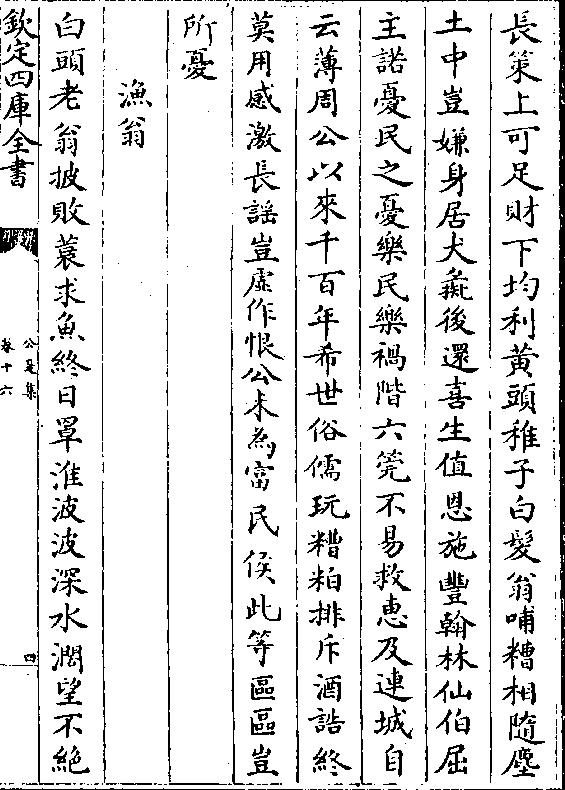 長策上可足財下均利黃頭稚子白髮翁哺糟相隨塵
土中豈嫌身居犬彘後還喜生值恩施豐翰林仙伯屈
主諾憂民之憂樂民樂禍階六筦不易救惠及連城自
云薄周公以來千百年希世俗儒玩糟粕排斥酒誥終
莫用感激長謡豈虛作恨公未為富民侯此等區區豈
所憂
漁翁
白頭老翁披敗蓑求魚終日罩淮波波深水濶望不絶
欽定四庫全書
公是集
卷十六
四